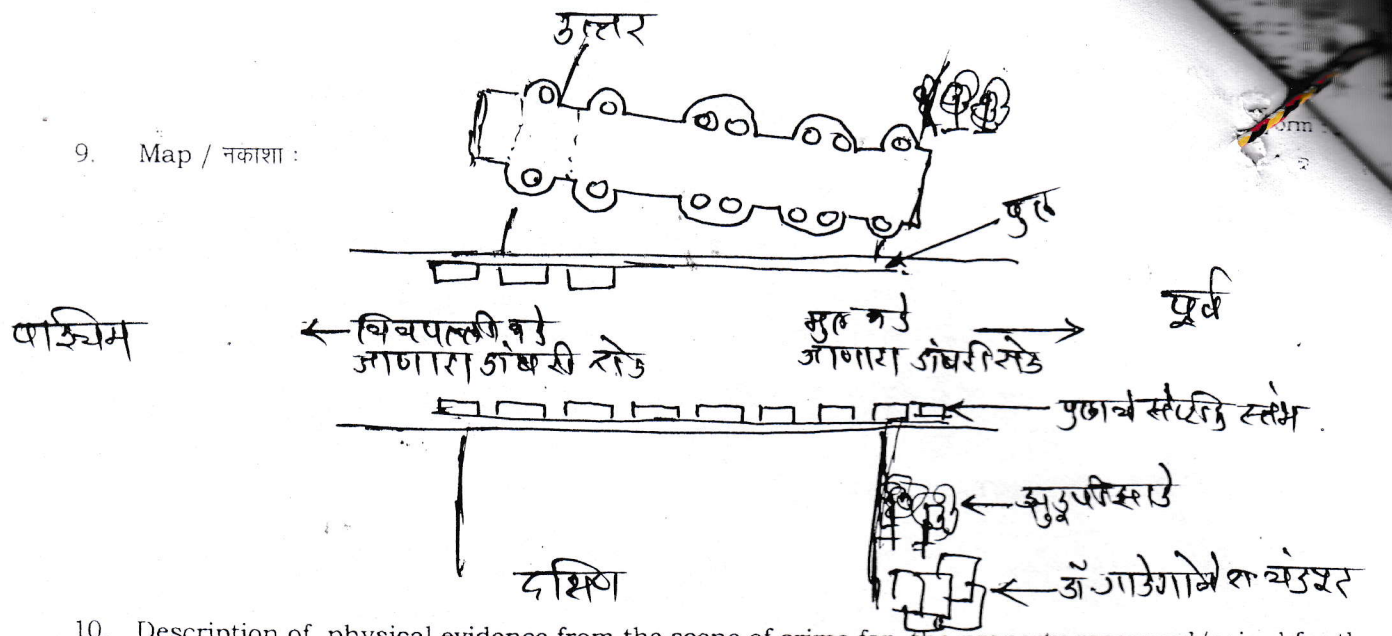 उत्तर
orm :
9. Map / नकाशा :
पुल
पूर्व
पश्चिम
चिचपल्ली कडे
जाणारा डांबरी रोड
मुल कडे
जाणारा डांबरी रोड
पुलाचे स्तंभ
झुडुपी झाडे
दक्षिण
डॉ
10. Description of physical evidence from the scene of crime for